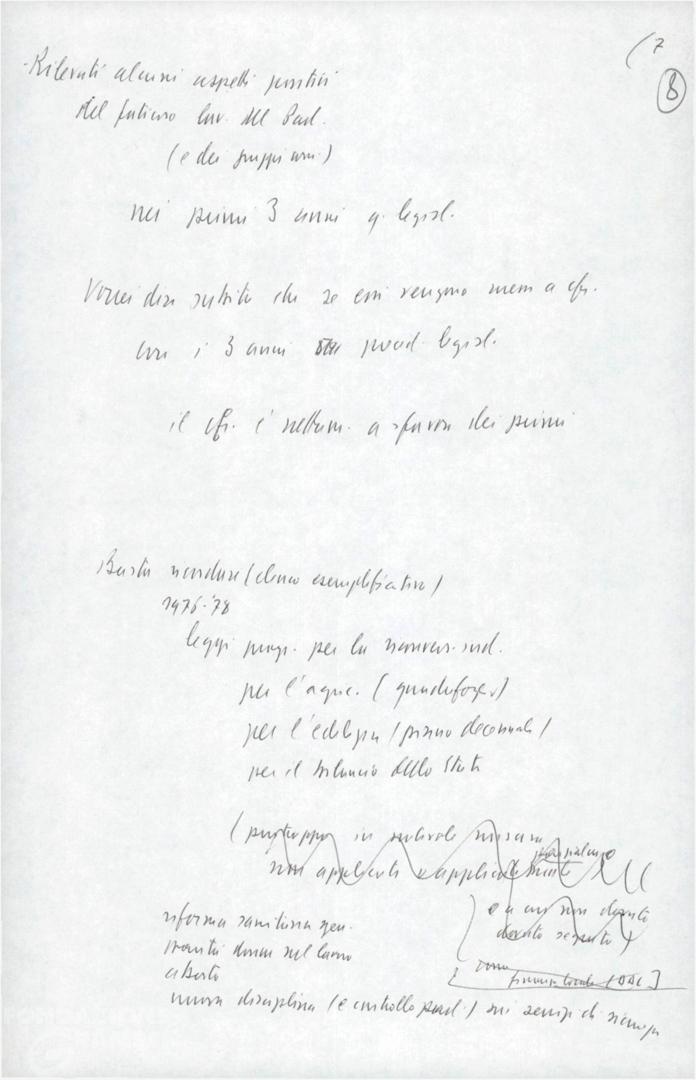 (7
8
- Rilevati alcuni aspetti positivi
del faticoso lav. del Parl.
(e dei gruppi com.)
nei primi 3 anni q. legisl.
Vorrei dire subito che se essi vengono messi a cfr.
con i 3 anni preced. legisl.
il cfr. è nettam. a sfavore dei primi
Basta ricordare (elenco esemplificativo)
1976-'78
leggi progr. per la riconvers. ind.
per l'agric. (quadrifogl.)
per l'edilizia (piano decennale)
per il bilancio dello Stato
(purtroppo in notevole misura
non applicate
e a cui non
seguito
riforma sanitaria gen.
parità donne sul lavoro
aborto
finanza locale
nuova disciplina (e controllo parl.) sui servizi di sicurezza